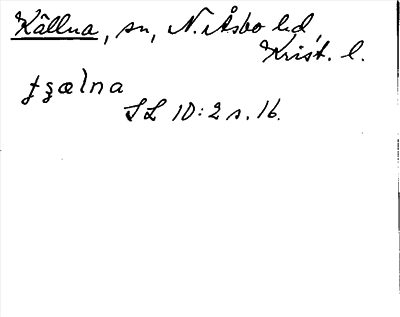 Källna, sn, N. Åsbo hd,
Krist. l.
ƫȿælna
SL 10:2 s. 16.